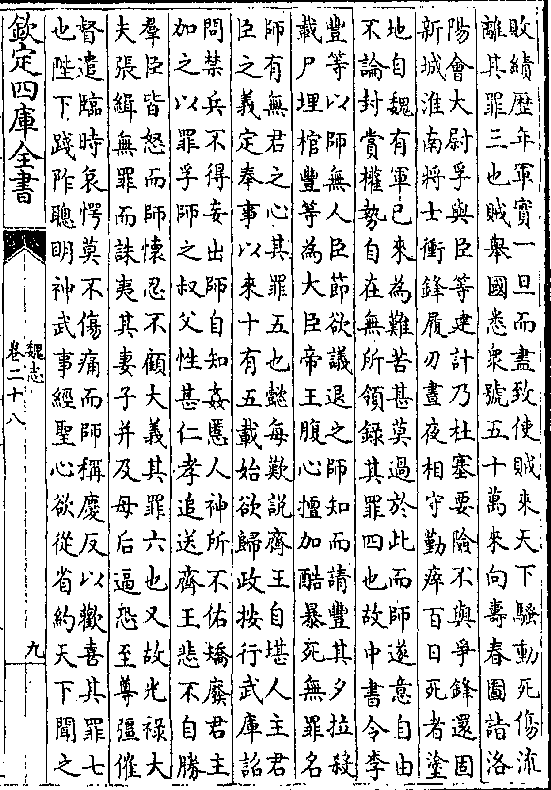 敗績歷年軍實一旦而盡致使賊來天下騷動死傷流
離其罪三也賊舉國悉衆號五十萬來向壽春圖詣洛
陽會大尉孚與臣等建計乃杜塞要險不與爭鋒還固
新城淮南將士衝鋒履刃晝夜相守勤瘁百日死者塗
地自魏有軍已來為難苦甚莫過於此而師遂意自由
不論封賞權勢自在無所領錄其罪四也故中書令李
豐等以師無人臣節欲議退之師知而請豐其夕拉殺
載尸埋棺豐等為大臣帝王腹心擅加酷暴死無罪名
師有無君之心其罪五也懿每歎說齊王自堪人主君
臣之義定奉事以來十有五載始欲歸政按行武庫詔
問禁兵不得妄出師自知姦慝人神所不佑矯廢君主
加之以罪孚師之叔父性甚仁孝追送齊王悲不自勝
羣臣皆怒而師懷忍不顧大義其罪六也又故光祿大
夫張緝無罪而誅夷其妻子并及母后逼恐至尊彊催
督遣臨時哀愕莫不傷痛而師稱慶反以歡喜其罪七
也陛下踐阼聰明神武事經聖心欲從省約天下聞之
欽定四庫全書
魏志
卷二十八
九